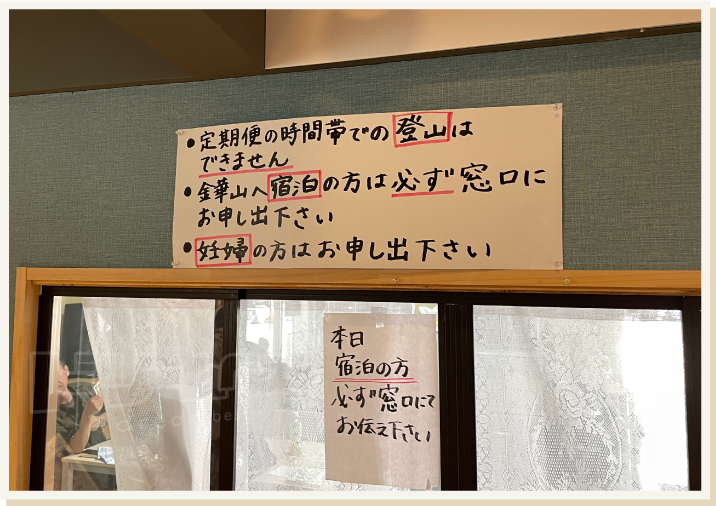 ●定期便の時間帯での登山は
できません
●金華山へ宿泊の方は必ず窓口に
お申し出下さい
●妊婦の方はお申し出下さい
本日
宿泊の方
必ず窓口にて
お伝え下さい